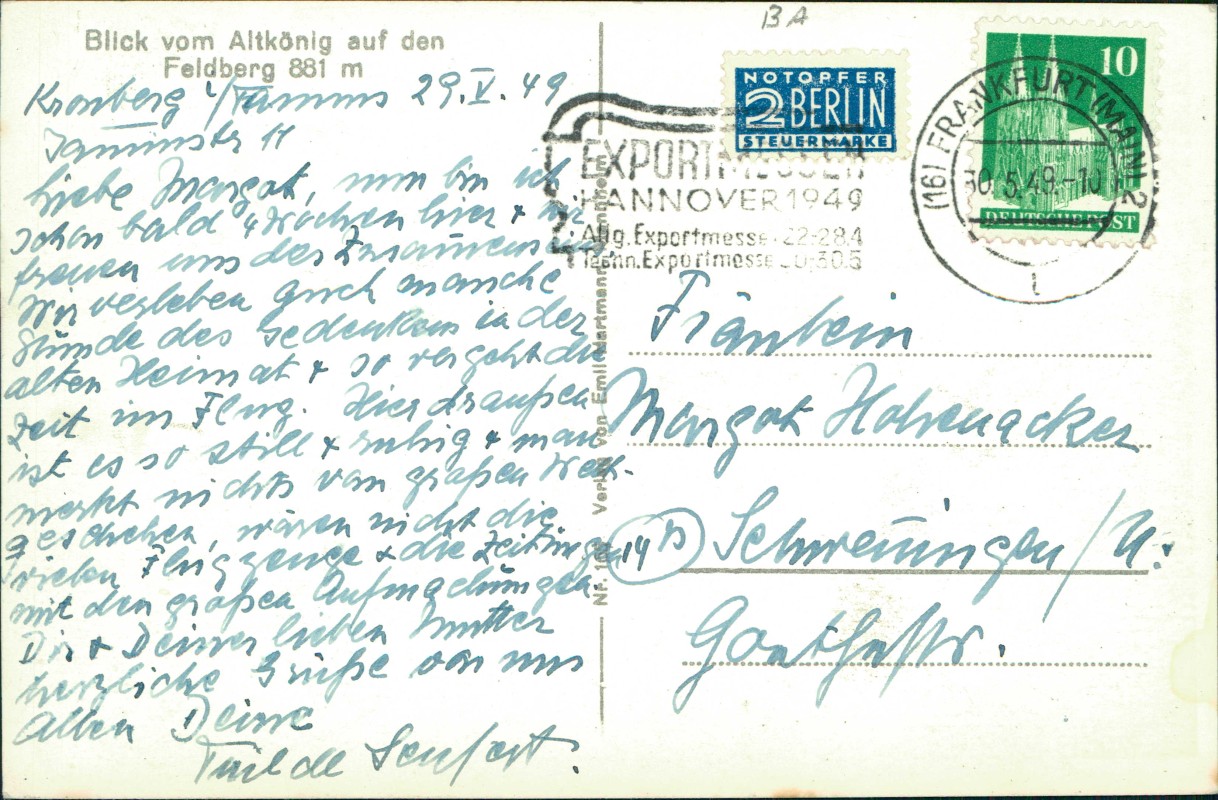 Blick vom Altkönig auf den
Feldberg 881 m
Kronberg i/Taunus 29.V.49
Liebe Margot, nun bin ich
schon bald 4 Wochen hier & wir
freuen uns des Zusammenseins
Wir verleben auch manche
Stunde des Gedenkens in der
alten Heimat & so vergeht die
Zeit im Flug. Hier draußen
ist es so still & ruhig & man
merkt nichts von großen Welt-
geschehen, wären nicht die
vielen Flugzeuge & die Zeitungen
mit den großen Aufmachungen.
Dir & Deiner lieben Mutter
herzliche Grüße von uns
Allen Deine
BA
NOTOPFER
2 BERLIN
STEUERMARKE
EXPORTMESSEN
HANNOVER 1949
Allg. Exportmesse 22-28.4
Techn. Exportmesse 30.5
10
DEUTSCHE POST
(16) FRANKFURT (MAIN) 2
30.5.49.-10
Fräulein
Margot Hohenacker
(14 b) Schwenningen/N.
Goethestr.
Verlag von Emil Hartmann
Nr.